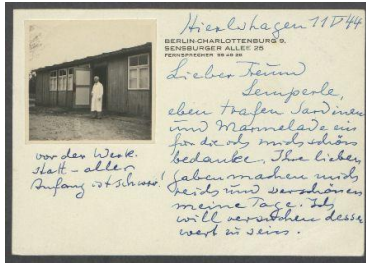 Hierlshagen 11 V 44
BERLIN-CHARLOTTENBURG 9,
SENSBURGER ALLEE 25
FERNSPRECHER 99 49 28
Lieber Freund
Semperle,
eben trafen Sardinen
und Marmelade ein
für die ich mich schön
bedanke. Ihre lieben
Gaben machen mich
reich und verschönen
meine Tage. Ich
will versuchen dessen
wert zu sein.
vor der Werk-
statt – aller
Anfang ist schwer!